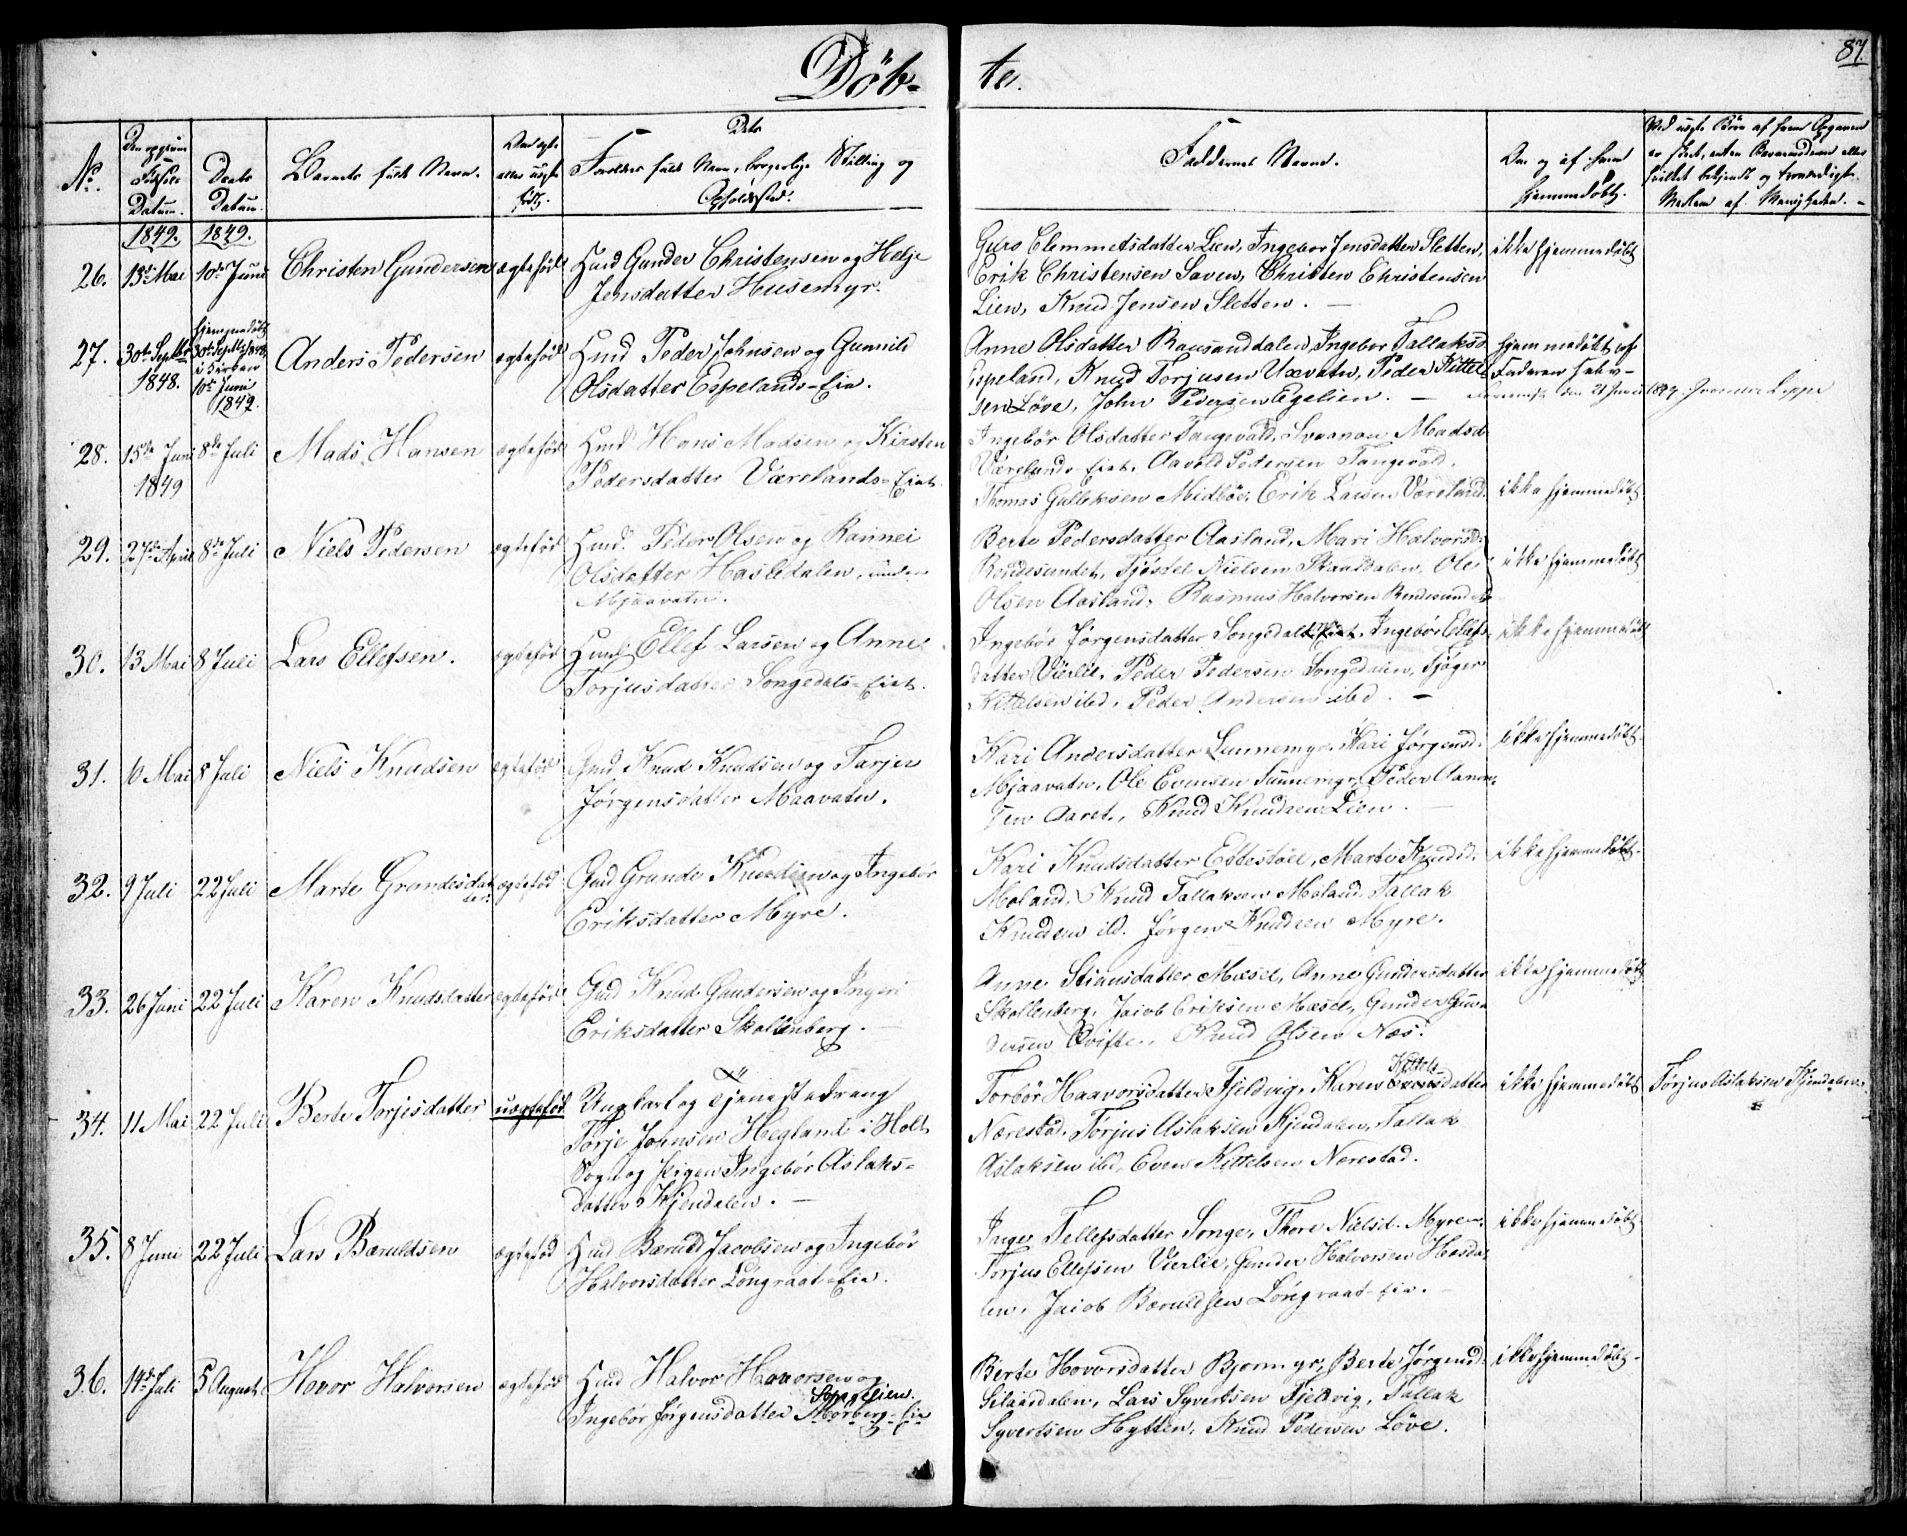 87.
Döb-te.
No.
Den opgivne Fødsels Datum.
Daabs Datum.
Barnets fulde Navn.
Om egte eller uegte født.
Dets Forældres fulde Navn, borgerlige Stilling og Opholdssted.
Faddernes Navne.
Om og af hvem hjemmedöbt.
Ved uegte Börn af hvem Opgaven er skeet, enten Barnemoderen eller hvilket bekjendt og troværdigt Medlem af Menigheden.
1849. 1849.
26. 13de Mai 10de Juni Christen Gundersen ægtefød Hmd Gunder Christensen og Helje
Jensdatter Husemyr.
Guro Clemmetsdatter Lien, Ingebor Jensdatter Sletten,
Erik Christensen Saven, Christen Christensen
Lien, Knud Jensen Sletten.
ikke hjemmedöbt
27. 30te Septbr 1848.
hjemmedöbt 30te Septbr 1848, i Kirken 10de Juni 1849.
Anders Pedersen ægtefød Hmd Peder Johnsen og Gunnild
Olsdatter Espelands-Eie.
Anne Olsdatter Rausanddalen, Ingebor Tallaksd.
Espeland, Knud Torjusen Uævatn, Peder Kittel-
sen Løve, John Pedersen Egelien.
hjemmedöbt af
Faderen selv
28. 15de Juni 1849 8de Juli Mads Hansen ægtefød Hmd Hans Madsen og Kirsten
Pedersdatter Værelands-Eiet.
Ingebör Olsdatter Tangevald, Svanau Madsd.
Værelands-Eiet, Aavold Pedersen Tangevald,
Thomas Gulleksen Midböe, Erik Larsen Væreland.
ikke hjemmedöbt
29. 27de April 8de Juli Niels Pedersen ægtefød Hmd. Peder Olsen og Rannei
Olsdatter Hasledalen, under
Mjaavatn.
Berte Pedersdatter Aasland, Mari Halvorsd.
Rendesundet, Tjöstel Nielsen Skaasdalen, Ole
Olsen Aasland, Rasmus Halvorsen Rendesund
ikke hjemmedöbt
30. 13 Mai 8 Juli Lars Ellefsen. ægtefød Hmd Ellef Larsen og Anne
Torjusdatter Songedals-Eiet.
Ingebör Jørgensdatter Songedals-Eiet, Ingebör Ellefs-
datter Vierlie, Peder Pedersen Songedalen, Tjöger
Kittelsen ibd, Peder Andersen ibd.
ikke hjemmedöbt
31. 6 Mai 8 Juli Niels Knudsen ægtefød Gmd Knud Knudsen og Tarjer
Jørgensdatter Maavatn.
Kari Andersdatter Sunnemyr, Kari Jørgensd.
Mjaavatn, Ole Evensen Sunnemyr, Peder Aanon-
sen Aaret, Knud Knudsen Lien.
ikke hjemmedöbt
32. 9 Juli 22 Juli Marte Grundesdatter ægtefød Gmd Grunde Knudsen og Ingebor
Eriksdatter Myre.
Kari Knudsdatter Ettestöl, Marte Knudsd.
Moland, Knud Tallaksen Moland, Tallak
Knudsen ibd. Jørgen Knudsen Myre.
ikke hjemmedöbt
33. 26 Juni 22 Juli Karen Knudsdatter ægtefød Gmd Knud Gundersen og Ingeri
Eriksdatter Skollenberg.
Anne Stiansdatter Mæsel, Anne Gundersdatter
Skollenberg, Jacob Eriksen Mæsel, Gunder Gun-
dersen Qvifte, Knud Olsen Næs.
ikke hjemmedöbt
34. 11 Mai 22 Juli Berte Torjisdatter uægtefød Ungkarl og Tjenestedreng
Torje Johnsen Hegland i Holt
Sogn og Pigen Ingebör Aslaks-
datter Kjendalen.
Torbör Haavorsdatter Fjeldvig, Karen Kittelsdatter
Nærestad, Torjus Aslaksen Kjendalen, Tallak
Aslaksen ibd, Even Kittelsen Nærestad.
ikke hjemmedöbt
Torjus Aslaksen Kjendalen.
35. 8 Juni 22 Juli Lars Baruldsen ægtefød Hmd Baruld Jacobsen og Ingebör
Halvorsdatter Longraat-Eie.
Inger Tellefsdatter Songe, Thore Nielsd. Myren,
Torjus Ellefsen Vierlie, Gunder Halvorsen Hasda-
len, Jacob Baruldsen Longraat-Eie.
ikke hjemmedöbt
36. 14de Juli 5 August Hovor Halvorsen ægtefød Hmd Halvor Hovorsen og
Ingebör Jørgensdatter Songelien Morberg-Eie
Berte Hovorsdatter Bjormyr, Berte Jørgensd.
Selaasdalen, Lars Syvertsen Fjeldvig, Tallak
Syvertsen Hytten, Knud Pedersen Löve.
ikke hjemmedöbt